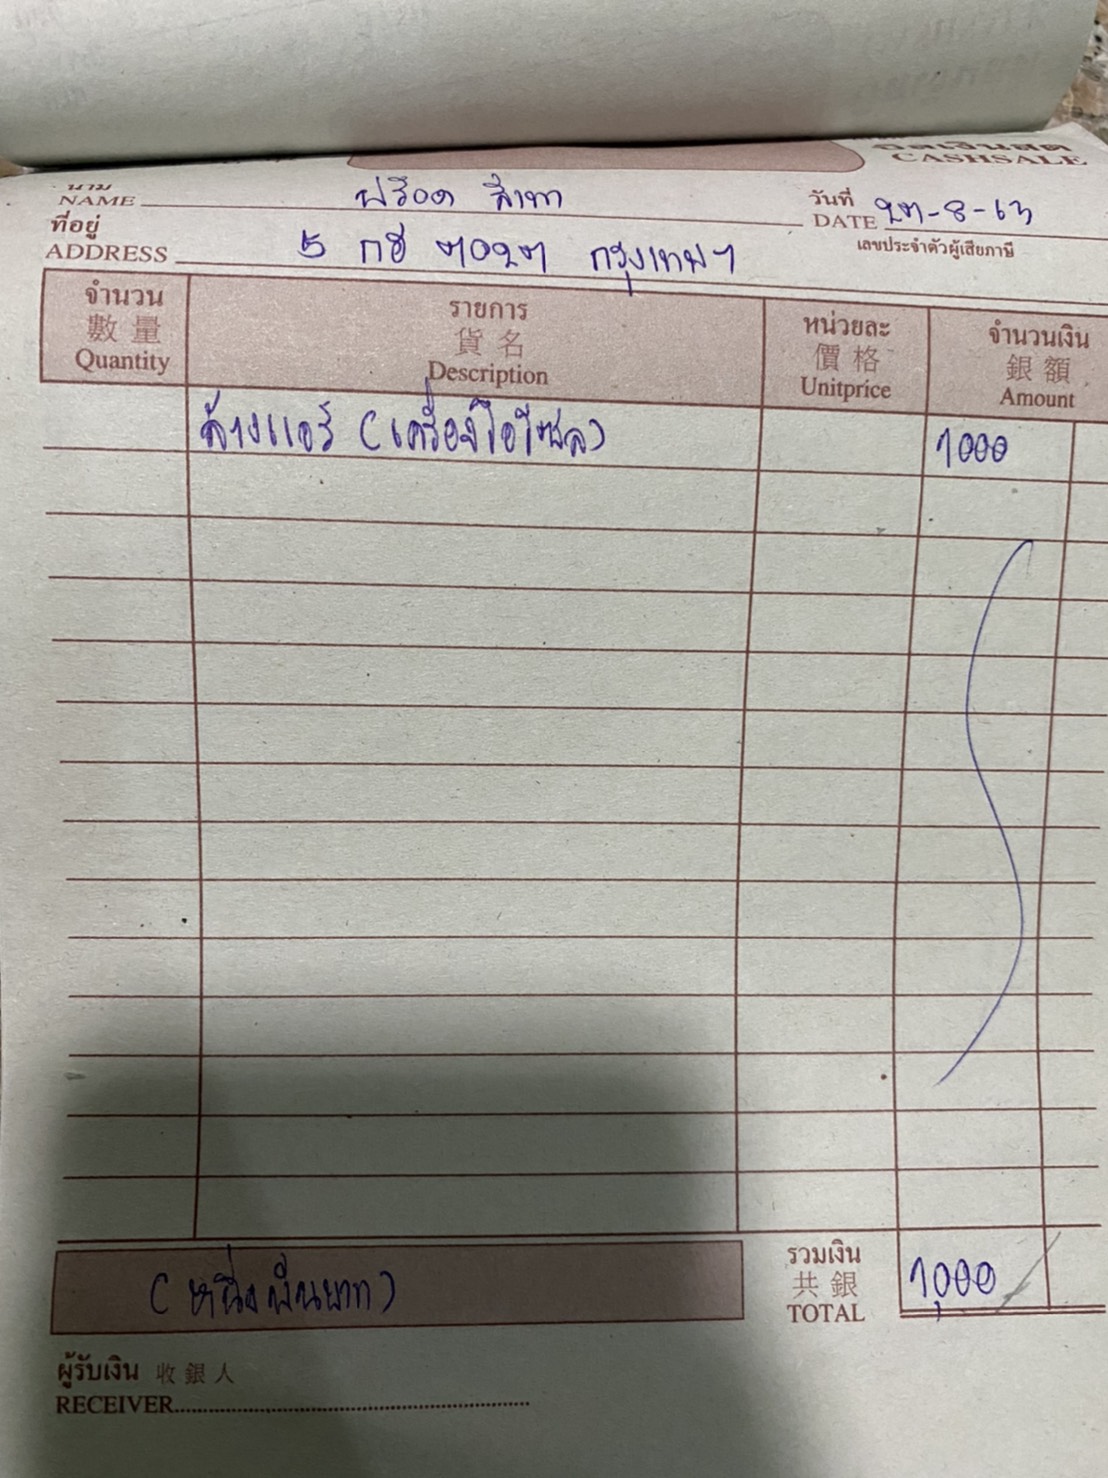 บิลเงินสด
CASHSALE
นาม
NAME
วันที่
DATE 27-8-63
ที่อยู่
ADDRESS 5 กฮ กรุงเทพฯ
เลขประจำตัวผู้เสียภาษี
จำนวน รายการ หน่วยละ จำนวนเงิน
數量 貨名 價格 銀額
Quantity Description Unitprice Amount
ล้างแอร์ (เครื่องไอโซล) 1000
(หนึ่งพันบาท)
รวมเงิน
共銀
TOTAL 1,000
ผู้รับเงิน 收銀人
RECEIVER